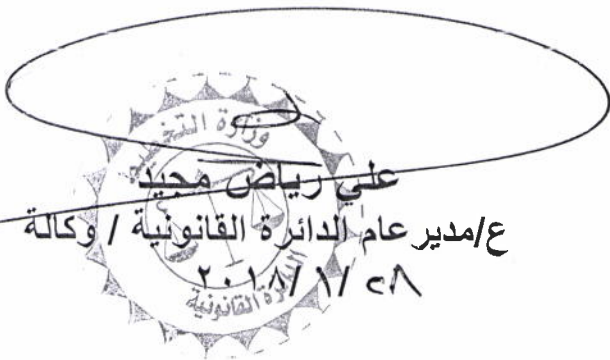 وزارة التخطيط
علي رياض مجيد
ع/مدير عام الدائرة القانونية / وكالة
٢٠١٨/ ١/ ٢٨
الدائرة القانونية